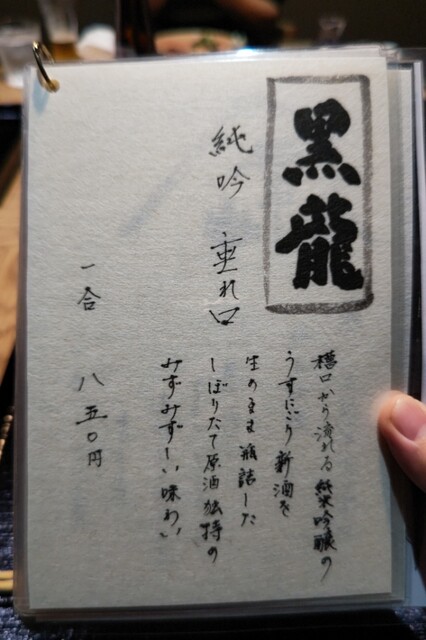 黒龍
純吟 垂れ口
槽口から流れる純米吟醸の
うすにごり新酒を
生のまま瓶詰した
しぼりたて原酒独特の
みずみずしい味わい
一合 八五〇円